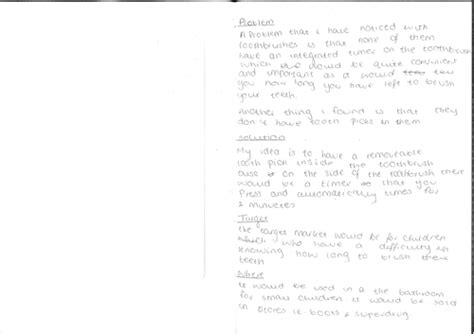 Problem
A Problem that i have noticed with
toothbrushes is that none of them
have an integrated timer on the toothbrush
which would be quite convinient
and important as a would tell
you how long you have left to brush
your teeth.
Another thing i found is that they
don't have tooth picks in them
Solution
My idea is to have a removeable
tooth pick inside the toothbrush
on the side of the toothbrush there
would be a timer that you
Press and automatically times for
2 minuetes
Target
the target market would be for children
who have a difficulty in
knowing how long to brush there
teeth
Where
it would be used in a the bathroom
for small children it would be sold
in stores i.e. boots & superdrug.